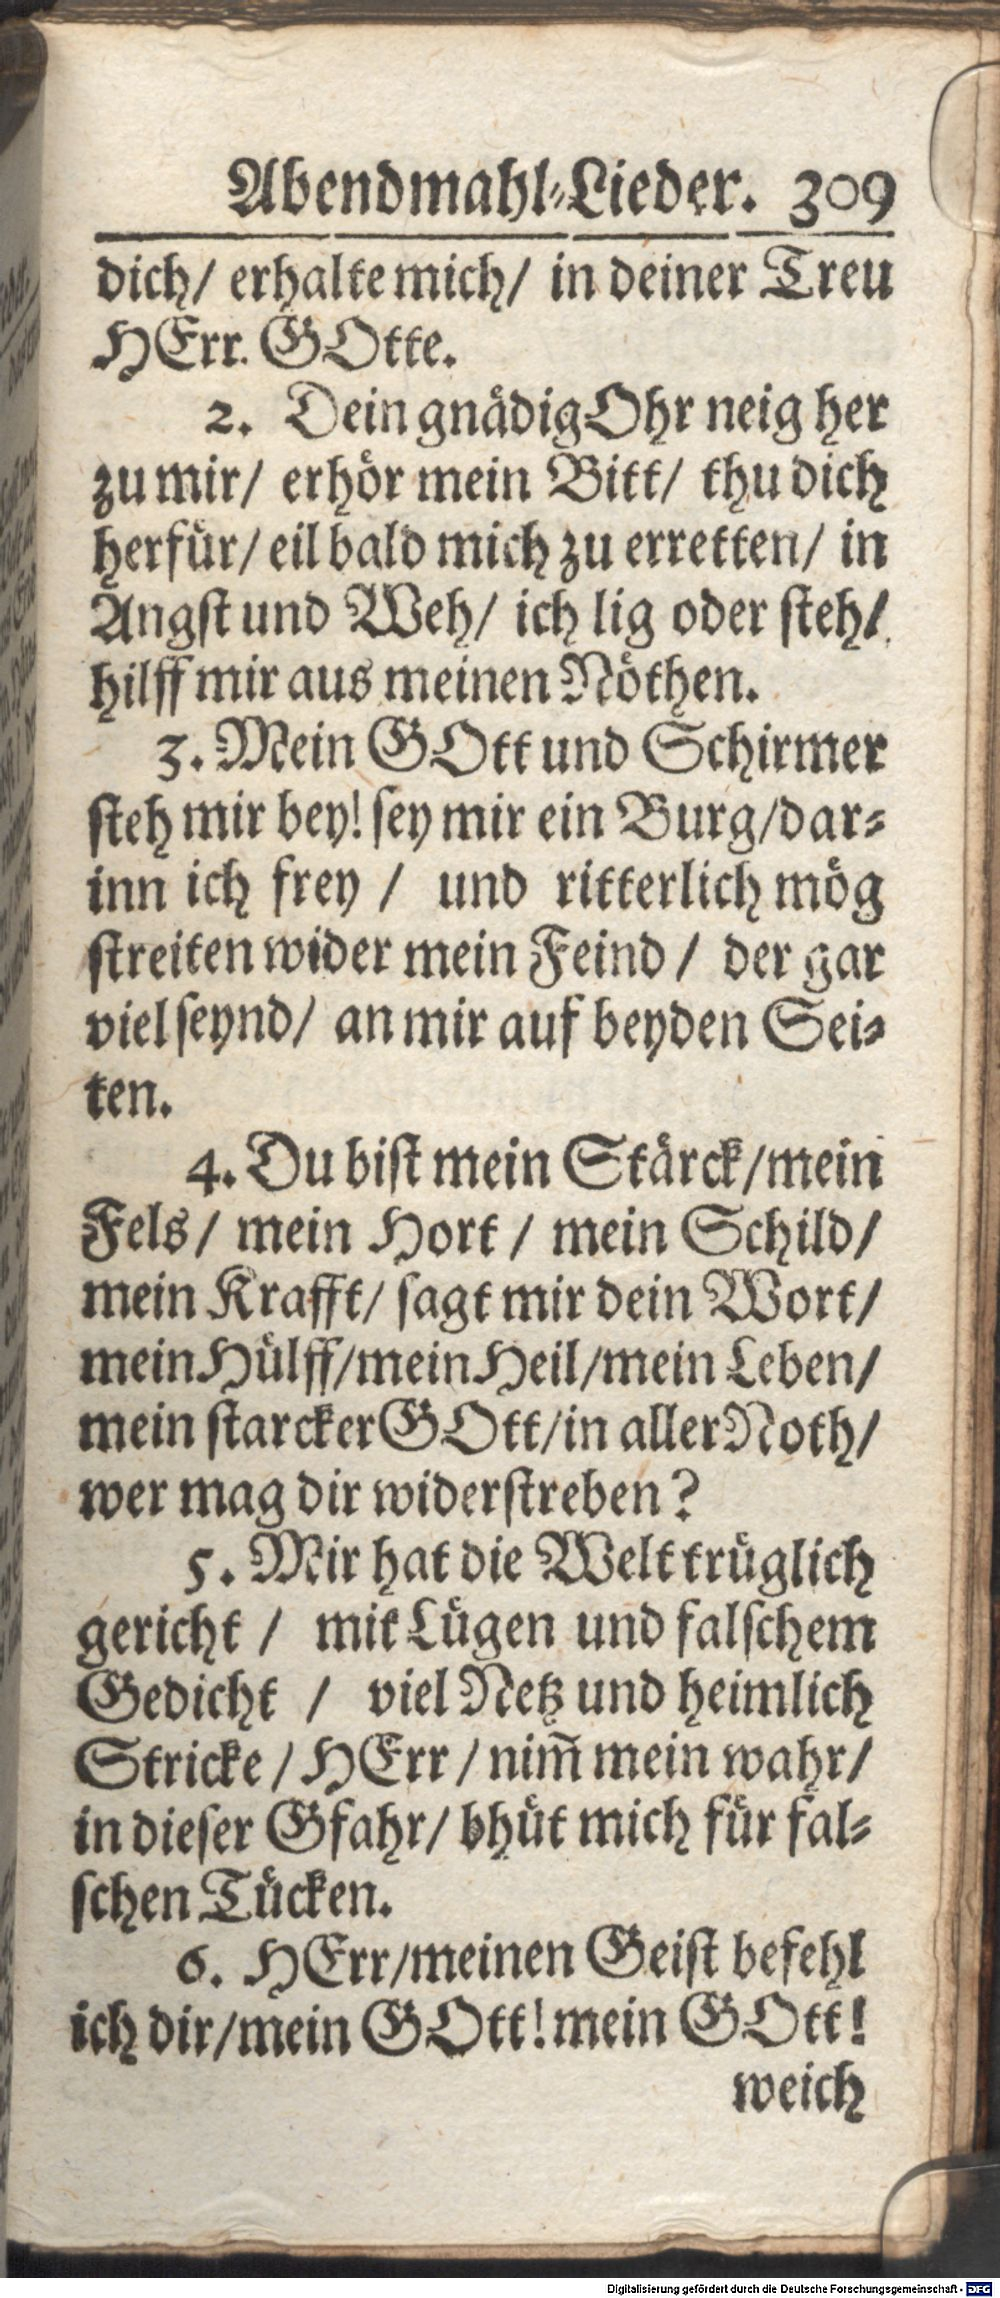 Abendmahl-Lieder. 309
dich/ erhalte mich/ in deiner Treu
HErr. GOtte.
2. Dein gnädig Ohr neig her
zu mir/ erhör mein Bitt/ thu dich
herfür/ eil bald mich zu erretten/ in
Angst und Weh/ ich lig oder steh/
hilff mir aus meinen Nöthen.
3. Mein GOtt und Schirmer
steh mir bey! sey mir ein Burg/dar-
inn ich frey / und ritterlich mög
streiten wider mein Feind / der gar
viel seynd/ an mir auf beyden Sei-
ten.
4. Du bist mein Stärck/mein
Fels/ mein Hort / mein Schild/
mein Krafft/ sagt mir dein Wort/
mein Hülff/mein Heil/mein Leben/
mein starcker GOtt/in aller Noth/
wer mag dir widerstreben?
5. Mir hat die Welt trüglich
gericht / mit Lügen und falschem
Gedicht / viel Netz und heimlich
Stricke / HErr / nim̃ mein wahr/
in dieser Gfahr/ bhüt mich für fal-
schen Tücken.
6. HErr/meinen Geist befehl
ich dir/mein GOtt! mein GOtt!
weich
Digitalisierung gefördert durch die Deutsche Forschungsgemeinschaft - DFG